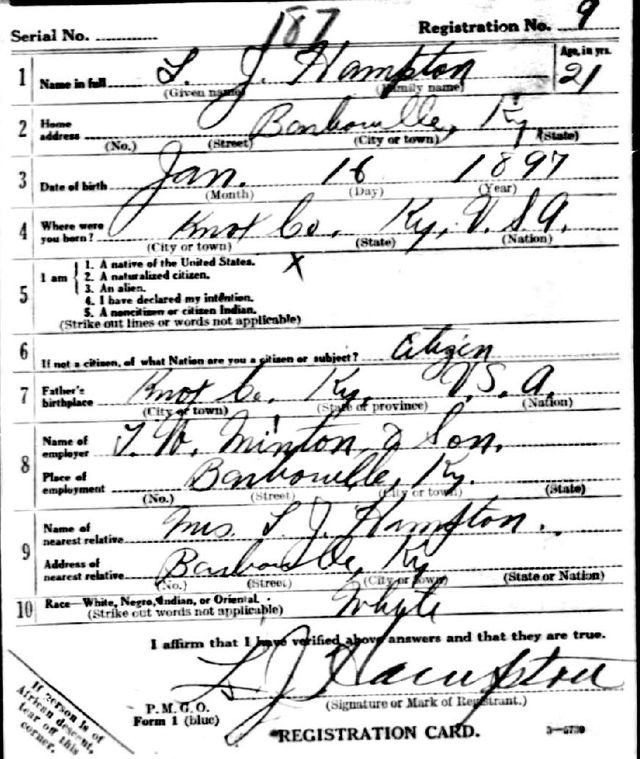 187
Serial No. Registration No. 9
1 Name in full L. J. Hampton Age, in yrs. 21
(Given name) (Family name)
2 Home address Barbourville, Ky.
(No.) (Street) (City or town) (State)
3 Date of birth Jan. 16 1897
(Month) (Day) (Year)
4 Where were you born? Knox Co. Ky, U.S.A.
(City or town) (State) (Nation)
5 I am
1. A native of the United States. X
2. A naturalized citizen.
3. An alien.
4. I have declared my intention.
5. A noncitizen or citizen Indian.
(Strike out lines or words not applicable)
6 If not a citizen, of what Nation are you a citizen or subject? Citizen
7 Father's birthplace Knox Co. Ky. U.S.A.
(City or town) (State or province) (Nation)
8 Name of employer T. W. Minton & Son.
Place of employment Barbourville, Ky.
(No.) (Street) (City or town) (State)
9 Name of nearest relative Mrs. L. J. Hampton.
Address of nearest relative Barbourville, Ky
(No.) (Street) (City or town) (State or Nation)
10 Race—White, Negro, Indian, or Oriental. Whyte
(Strike out words not applicable)
I affirm that I have verified above answers and that they are true.
L J Hampton
(Signature or Mark of Registrant.)
P. M. G. O.
Form 1 (blue)
REGISTRATION CARD. 3—5730
If person is of
African descent,
tear off this
corner.